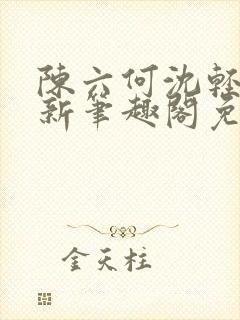 陳六何沈輕
新筆趣閣免
金天柱